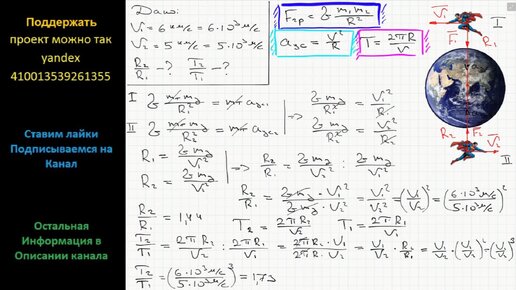 Поддержать
проект можно так
yandex
410013539261355
Ставим лайки
Подписываемся на
Канал
Остальная
Информация в
Описании канала
Дано:
V₁ = 6 км/с = 6·10³ м/с
V₂ = 5 км/с = 5·10³ м/с
R₂/R₁ - ? T₂/T₁ - ?
Fгр = G m₁m₂/R²
aцс = V²/R
T = 2πR/V
I G m mз/R₁² = m aцс₁ => G mз/R₁² = V₁²/R₁
II G m mз/R₂² = m aцс₂
R₁ = G mз/V₁² => R₂/R₁ = G mз/V₂² : G mз/V₁²
R₂ = G mз/V₂²
R₂/R₁ = G mз/V₂² · V₁²/G mз = V₁²/V₂² = (V₁/V₂)² = (6·10³ м/с / 5·10³ м/с)²
R₂/R₁ = 1,44 T₂ = 2πR₂/V₂ T₁ = 2πR₁/V₁
T₂/T₁ = 2πR₂/V₂ : 2πR₁/V₁ = 2πR₂/V₂ · V₁/2πR₁ = V₁/V₂ · R₂/R₁ = V₁/V₂ · (V₁/V₂)² = (V₁/V₂)³
T₂/T₁ = (6·10³ м/с / 5·10³ м/с)³ = 1,73
V₁
I
F₁
R₁
R₂
F₂
V₂
II